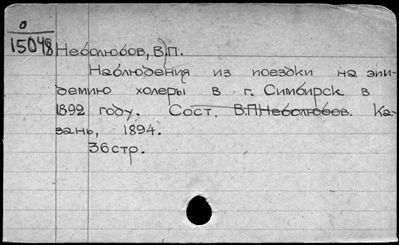 0
15048
Неболюбов, В.П.
Наблюдения из поездки на эпи-
демию холеры в г. Симбирск в
1892 году. Сост. В.П.Неболюбов. Ка-
зань, 1894.
36стр.